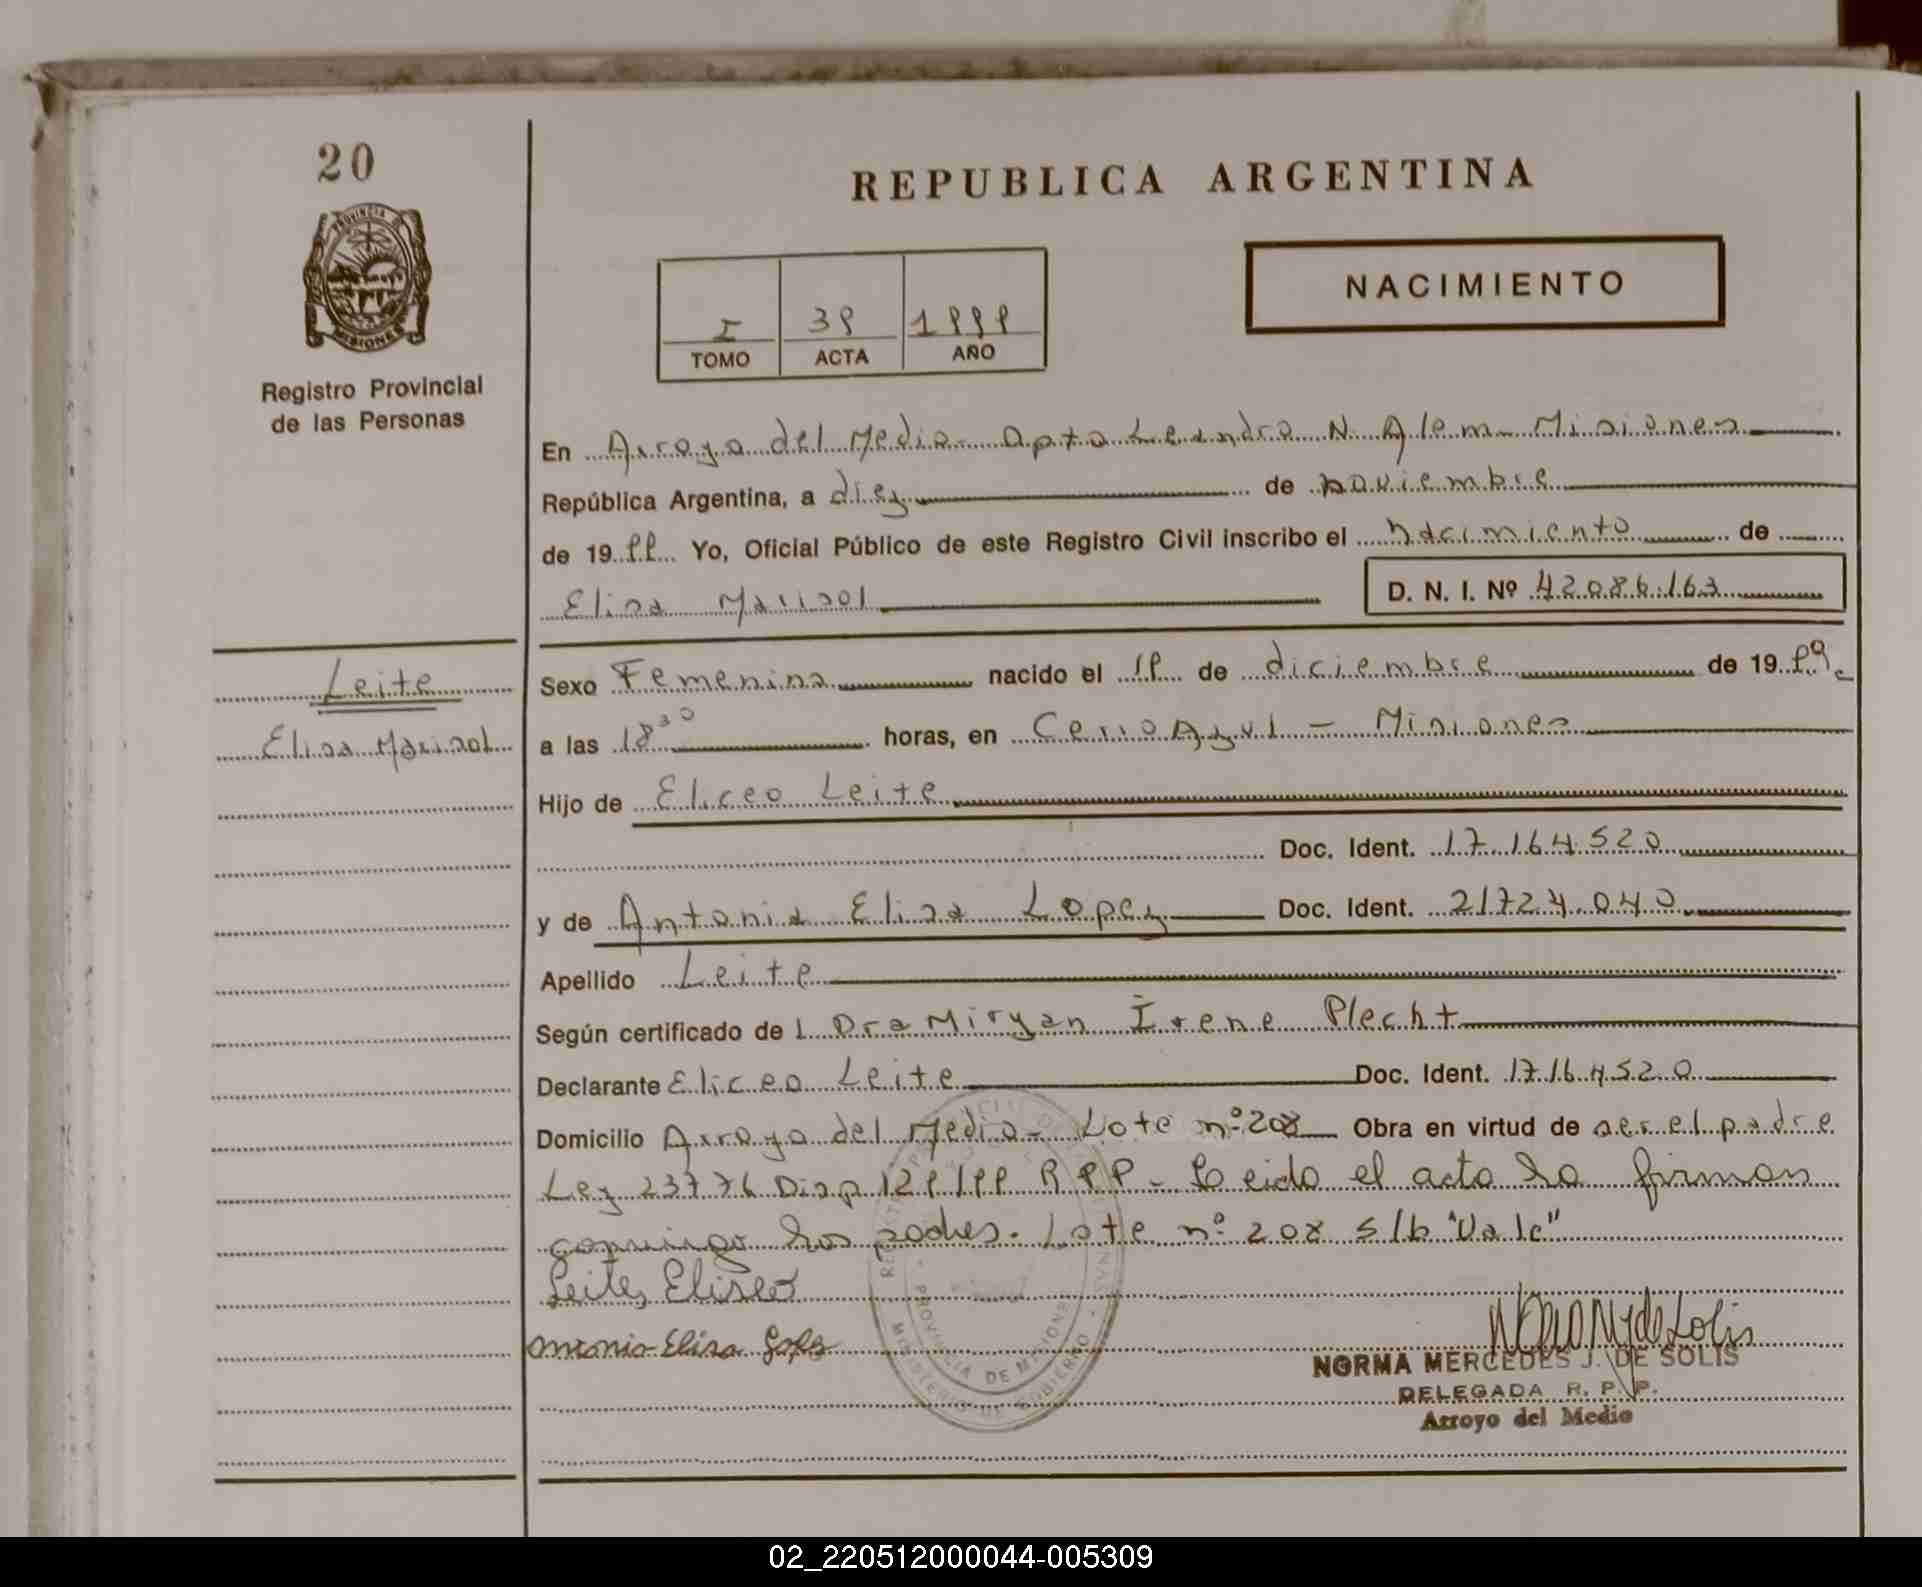 20
REPUBLICA ARGENTINA
PROVINCIA DE
MISIONES
NACIMIENTO
I 39 1999
TOMO ACTA AÑO
Registro Provincial
de las Personas
En Arroyo del Medio - Dpto Leandro N. Alem - Misiones
República Argentina, a diez de noviembre
de 1999 Yo, Oficial Público de este Registro Civil inscribo el Nacimiento de
Elisa Marisol D. N. I. Nº 42.086.163
Leite
Elisa Marisol
Sexo Femenino nacido el 19 de diciembre de 1989
a las 18³⁰ horas, en Cerro Azul - Misiones
Hijo de Eliceo Leite
Doc. Ident. 17.164.520
y de Antonia Elisa Lopez Doc. Ident. 21.724.040
Apellido Leite
Según certificado de l Dra Miryan Irene Plecht
Declarante Eliceo Leite Doc. Ident. 17.164.520
Domicilio Arroyo del Medio - Lote nº 208 Obra en virtud de ser el padre
Ley 23776 Disp 129/99 R P P - Leida el acta la firman
conmigo los padres. Lote nº 208 s/b "Vale"
Leite, Eliseo
Antonia Elisa Lopez
NORMA MERCEDES J. DE SOLIS
DELEGADA R. P. P.
Arroyo del Medio
PROVINCIA DE MISIONES
MINISTERIO DE GOBIERNO
02_220512000044-005309